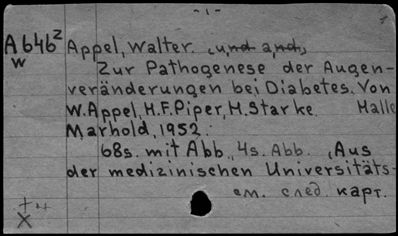 - 1 -
1
A 646²
w
Appel, Walter. (und and.)
Zur Pathogenese der Augen-
veränderungen bei Diabetes. Von
W. Appel, H.F. Piper, H. Starke. Halle
Marhold, 1952.
68s. mit Abb., 4s. Abb. (Aus
der medizinischen Universitäts-
см. след карт.